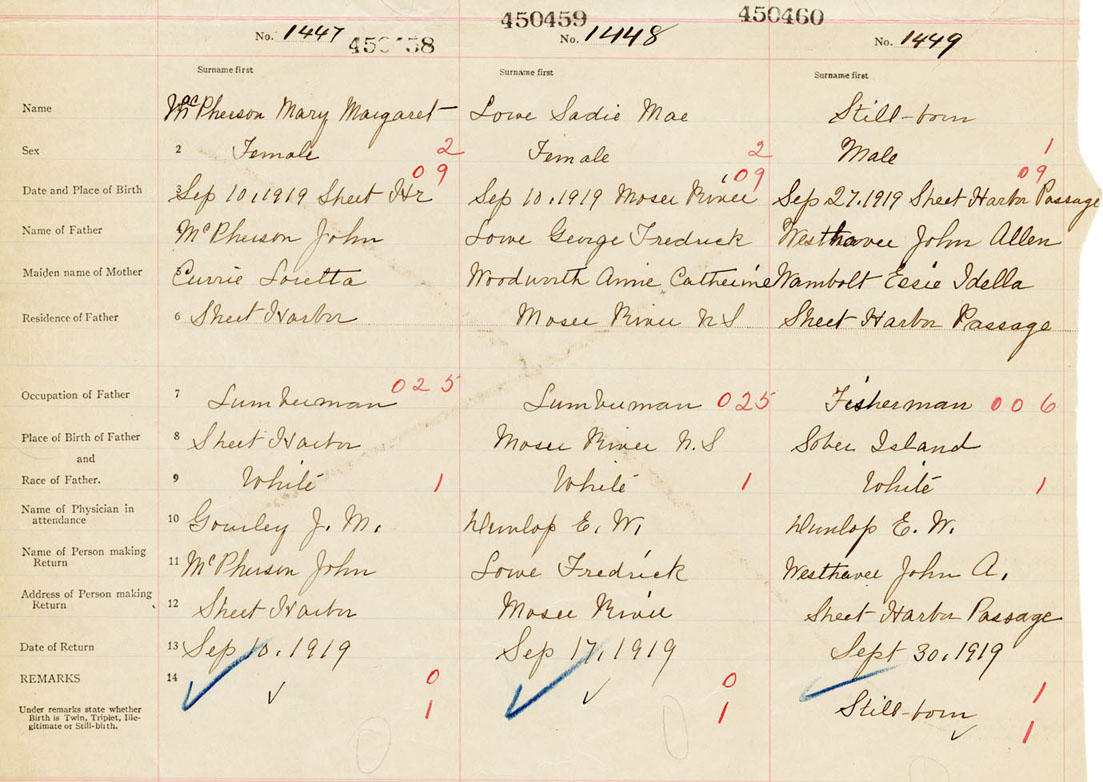 450459 450460
No. 1447 450458 No. 1448 No. 1449
Surname first Surname first Surname first
Name McPherson Mary Margaret Lowe Sadie Mae Still-born
Sex 2 Female 2 Female 2 Male 1
09 09 09
Date and Place of Birth 3 Sep 10, 1919 Sheet Hr Sep 10, 1919 Moser River Sep 27, 1919 Sheet Harbor Passage
Name of Father McPherson John Lowe George Fredrick Westhaver John Allen
Maiden name of Mother 5 Currie Loretta Woodworth Annie Catherine Wambolt Essie Idella
Residence of Father 6 Sheet Harbor Moser River N S Sheet Harbor Passage
Occupation of Father 7 Lumberman 025 Lumberman 025 Fisherman 006
Place of Birth of Father 8 Sheet Harbor Moser River N.S Sober Island
and
Race of Father. 9 White 1 White 1 White 1
Name of Physician in
attendance 10 Gourley J. M. Dunlop E. W. Dunlop E. W.
Name of Person making
Return 11 McPherson John Lowe Fredrick Westhaver John A.
Address of Person making
Return 12 Sheet Harbor Moser River Sheet Harbor Passage
Date of Return 13 Sep 10, 1919 Sep 17, 1919 Sept 30, 1919
REMARKS 14 0 0 1
Under remarks state whether
Birth is Twin, Triplet, Ille-
gitimate or Still-birth. 1 1 Still-born 1